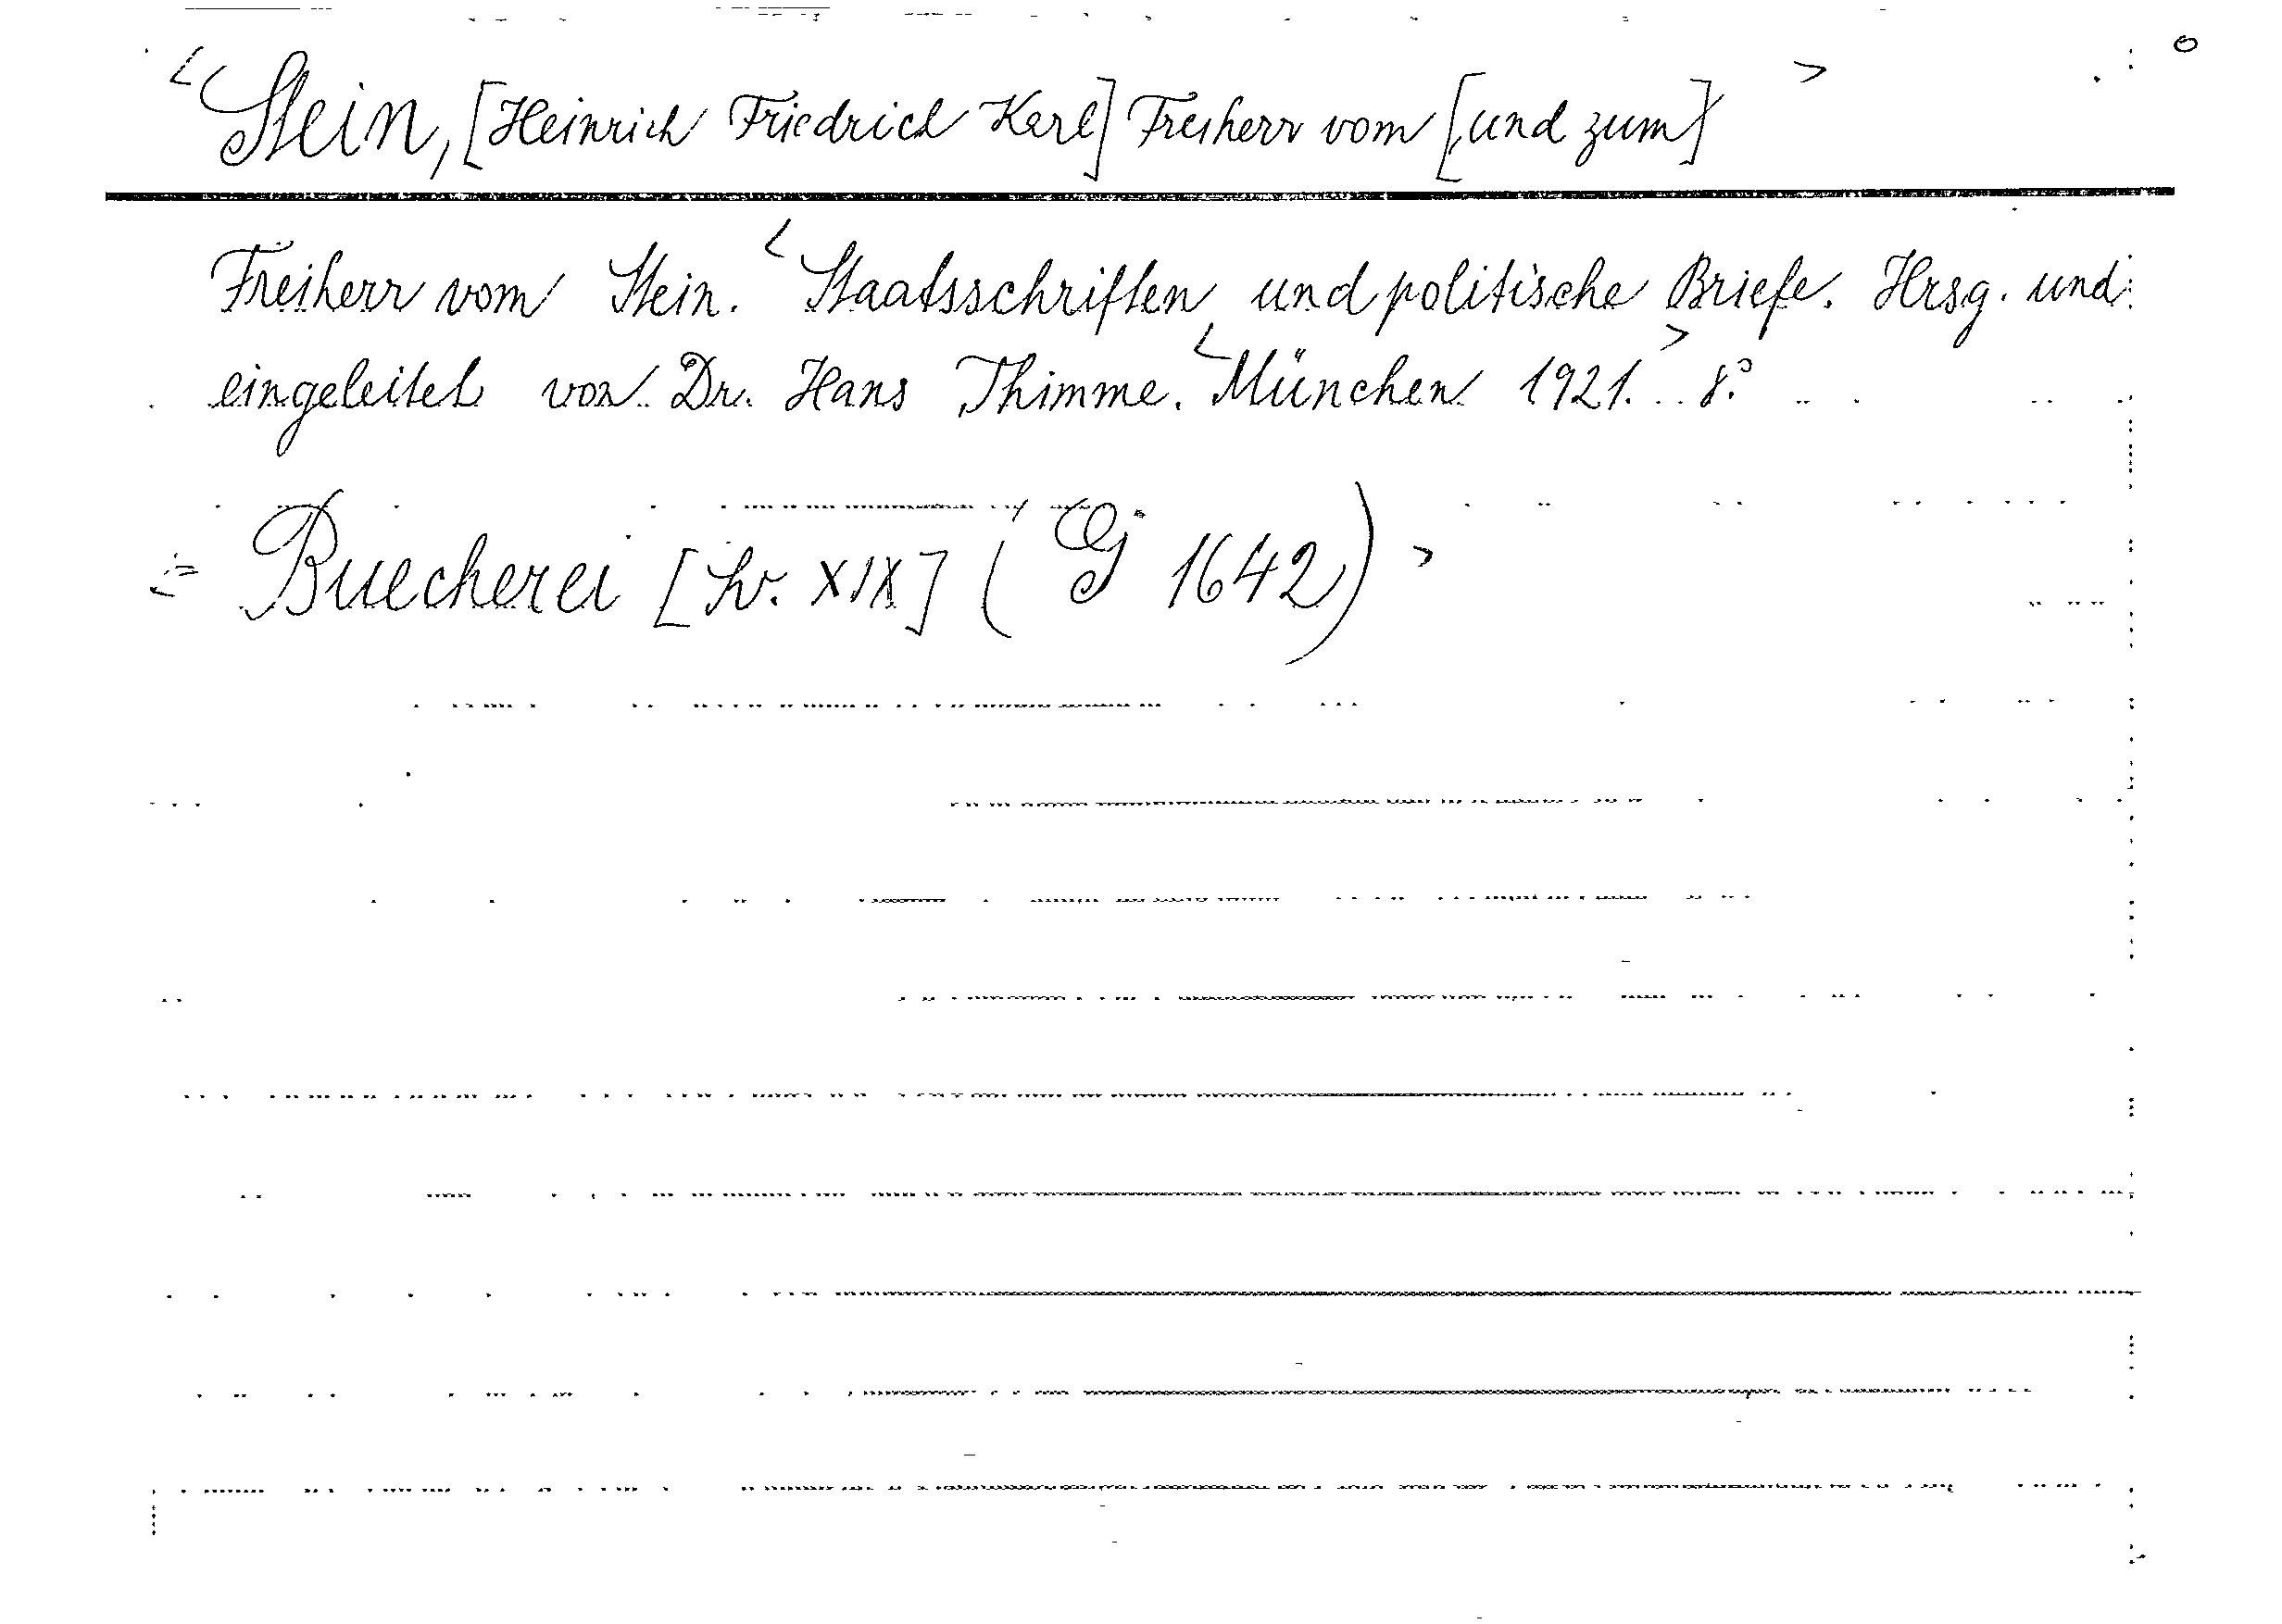 <Stein, [Heinrich Friedrich Karl] Freiherr vom [und zum]>
Freiherr vom Stein. <Staatsschriften und politische Briefe. Hrsg. und
eingeleitet von Dr. Hans Thimme. <München 1921.> 8°
<= Buecherei [ XIX] (Gj 1642)>